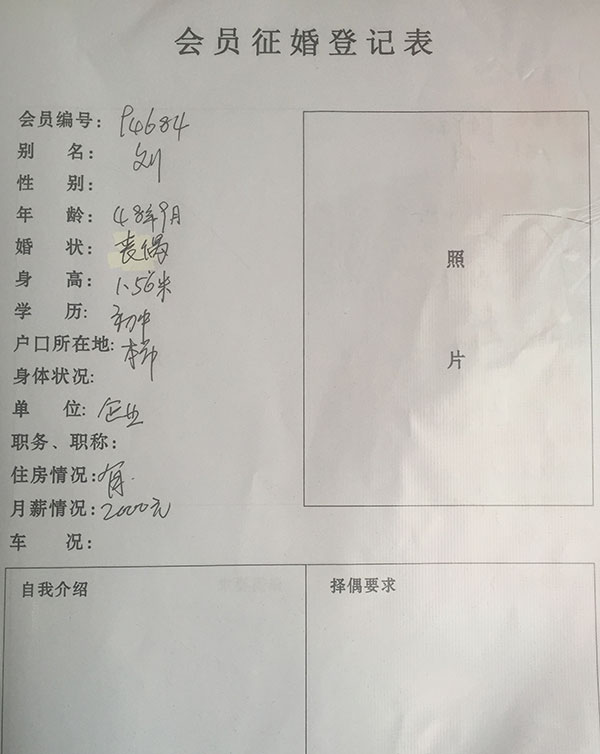 会员征婚登记表
会员编号: P4684
别 名: 刘
性 别:
年 龄: 48年9月
婚 状: 丧偶
身 高: 1.56米
学 历: 初中
户口所在地: 本市
身体状况:
单 位: 企业
职务、职称:
住房情况: 有.
月薪情况: 2000元
车 况:
照
片
自我介绍
择偶要求